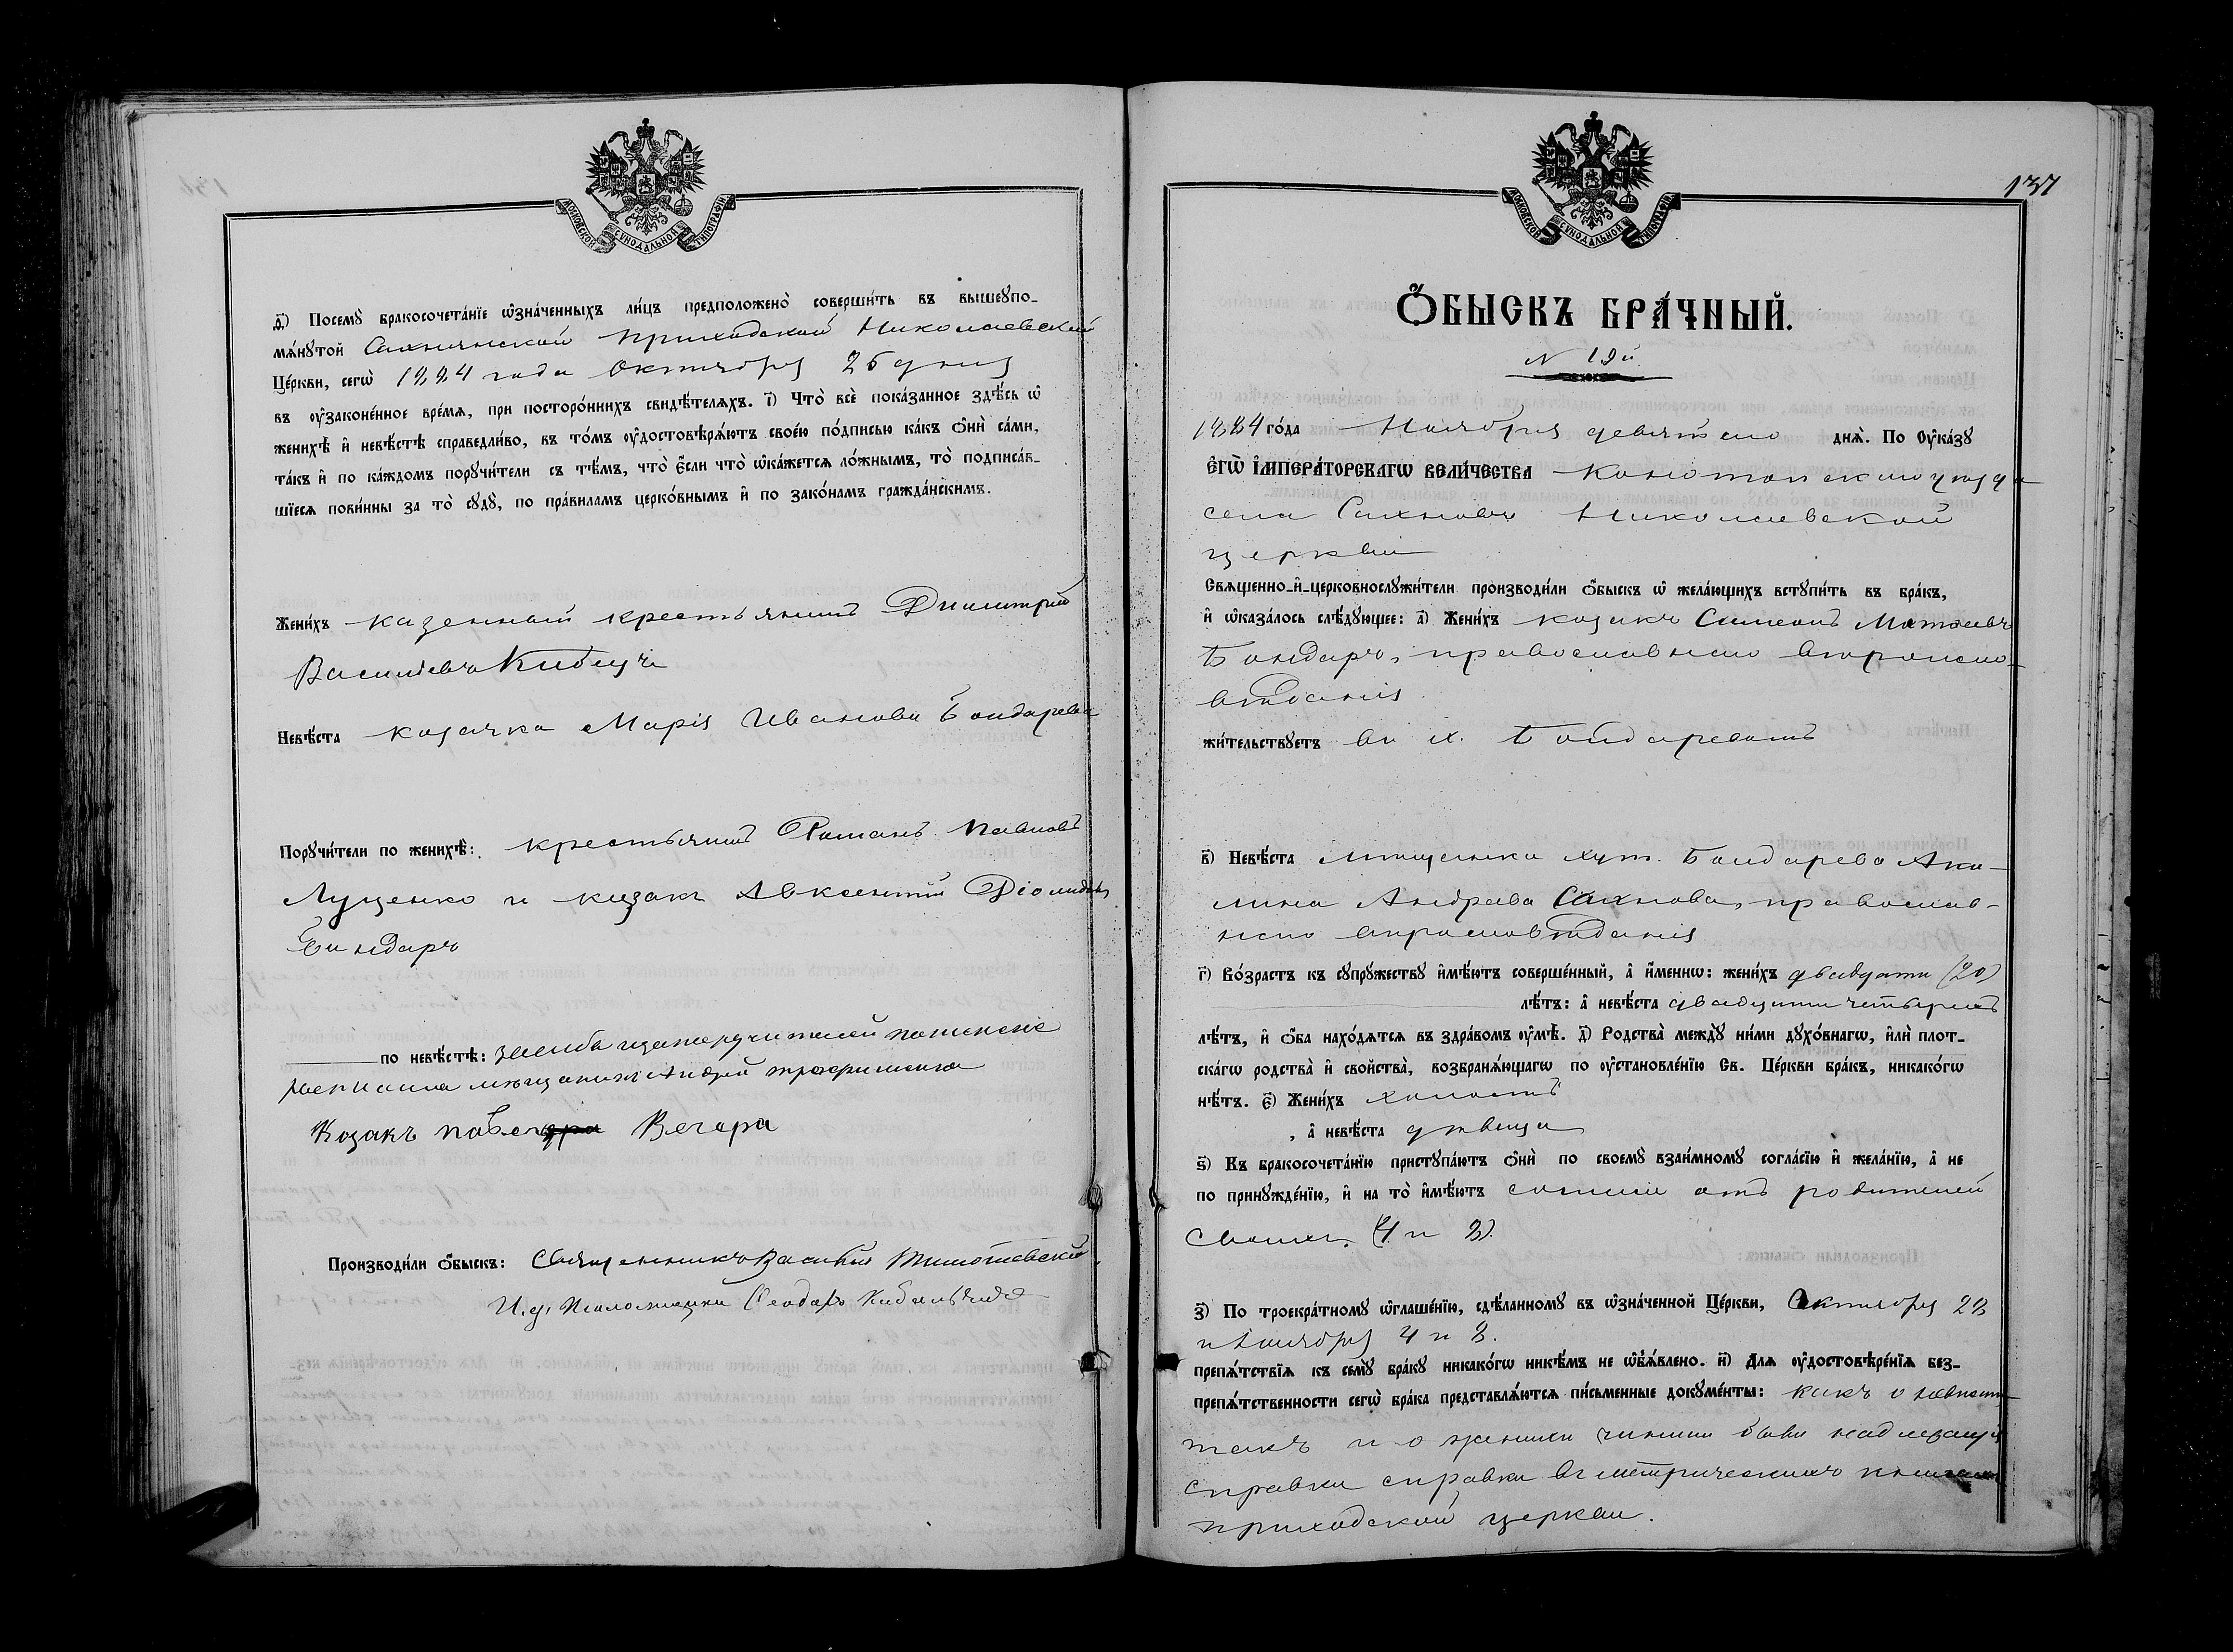 МОСКОВСКОЙ СѴНОДАЛЬНОЙ ТИПОГРАФІИ
д҃) Посемꙋ бракосочета́нїе ѡ҆зна́ченныхъ ли́цъ предположено̀ соверши́ть въ вышеꙋпо-
мѧ́нꙋтой Сахновской приходской Николаевской
Це́ркви, сегѡ̀ 1884 года Октября 25 дня
въ ᲂу҆законе́нное вре́мѧ, при посторо́ннихъ свидѣ́телѧхъ. і҃) Что̀ всѐ пока́занное здѣ́сь ѡ҆
женихѣ̀ и҆ невѣ́стѣ справедли́во, въ то́мъ ᲂу҆достовѣрѧ́ютъ свое́ю по́дписью ка́къ ѻ҆нѝ са́ми,
та́къ и҆ по ка́ждомъ порꙋчи́тели съ тѣ́мъ, что̀ є҆́сли что̀ ѡ҆ка́жетсѧ ло́жнымъ, то̀ подписа́в-
шїесѧ пови́нны за то̀ сꙋдꙋ̀, по пра́виламъ церко́внымъ и҆ по зако́намъ гражда́нскимъ.
Жени́хъ казенный крестьянинъ Димитрій
Васильевъ
Невѣ́ста козачка Марія Иванова Бондарева
Порꙋчи́тели по женихѣ̀: крестьянинъ Романъ Павловъ
Луценко и козакъ Авксентій Діомидовъ
Бондарь
по невѣ́стѣ:
мѣщанинъ Андрей
Козакъ Вечера
Производи́ли ѻ҆́быскъ: Священникъ Василій Тимоѳіевскій
И. д. Псаломщика Ѳеодоръ Кибальчичъ
137
МОСКОВСКОЙ СѴНОДАЛЬНОЙ ТИПОГРАФІИ
Ѻ҆́БЫСКЪ БРА́ЧНЫЙ.
N 19й
1884 го́да Ноября девятаго днѧ̀. По Оу҆ка́зꙋ
Є҆ГѠ̀ И҆МПЕРА́ТОРСКАГѠ ВЕЛИ́ЧЕСТВА Конотопскаго уѣзда
села Сахновъ Николаевской
церкви
Свѧщенно-и҆-церковнослꙋжи́тели производи́ли ѻ҆́быскъ ѡ҆ жела́ющихъ встꙋпи́ть въ бра́къ,
и҆ ѡ҆каза́лось слѣ́дꙋющее: а҃) Жени́хъ козакъ Симеонъ Матѳеевъ
Бондарь, православнаго вѣроиспо-
вѣданія
жи́тельствꙋетъ въ х. Бондаревомъ
в҃) Невѣ́ста мѣщанка хут. Бондарева Аки-
лина Андреева Сахнова, православ-
наго вѣроисповѣданія
г҃) Во́зрастъ къ сꙋпрꙋ́жествꙋ и҆мѣ́ютъ соверше́нный, а҆ и҆́меннѡ: жени́хъ двадцати (20)
лѣ́тъ: а҆ невѣ́ста двадцати четырехъ
лѣ́тъ, и҆ ѻ҆́ба нахо́дѧтсѧ въ здра́вомъ ᲂу҆мѣ̀. д҃) Родства̀ междꙋ̀ ни́ми дꙋхо́внагѡ, и҆лѝ плот-
ска́гѡ родства̀ и҆ сво́йства, возбранѧ́ющагѡ по ᲂу҆становле́нїю Св. Це́ркви бра́къ, никако́гѡ
нѣ́тъ. є҃) Жени́хъ холостъ
, а҆ невѣ́ста дѣвица
ѕ҃) Къ бракосочета́нїю пристꙋпа́ютъ ѻ҆нѝ по своемꙋ̀ взаи́мномꙋ согла́сїю и҆ жела́нїю, а҆ не
по принꙋжде́нїю, и҆ на то̀ и҆мѣ́ютъ согласіе отъ родителей
своихъ.
з҃) По троекра́тномꙋ ѡ҆глаше́нїю, сдѣ́ланномꙋ въ ѡ҆зна́ченной Це́ркви, Октября 28
и Ноября 4 и 8.
препѧ́тствїѧ къ семꙋ̀ бра́кꙋ никако́гѡ никѣ́мъ не ѡ҆б̾ѧ́влено. и҃) Длѧ ᲂу҆достовѣре́нїѧ без-
препѧ́тственности сегѡ̀ бра́ка представлѧ́ютсѧ пи́сьменные докꙋме́нты: какъ о невѣстѣ
такъ и о женихѣ чинимы были надлежащія
справки справки въ метрическихъ книгахъ
приходской церкви.